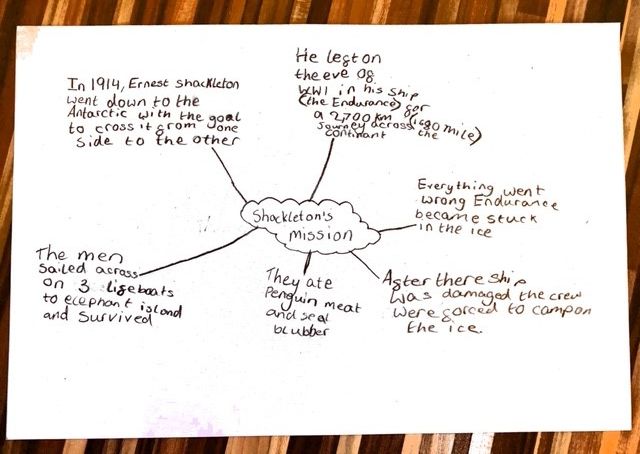 In 1914, Ernest Shackleton
went down to the
Antarctic with the goal
to cross it from one
side to the other
He left on
the eve of
WW1 in his ship
(the Endurance) for
a 2,700 km (1680 mile)
journey across the
continant
Everything went
wrong Endurance
became stuck
in the ice
Shackleton's
mission
After there ship
was damaged the crew
were forced to camp on
the ice.
They ate
Penguin meat
and seal
blubber
The men
sailed across
on 3 lifeboats
to elephant island
and survived